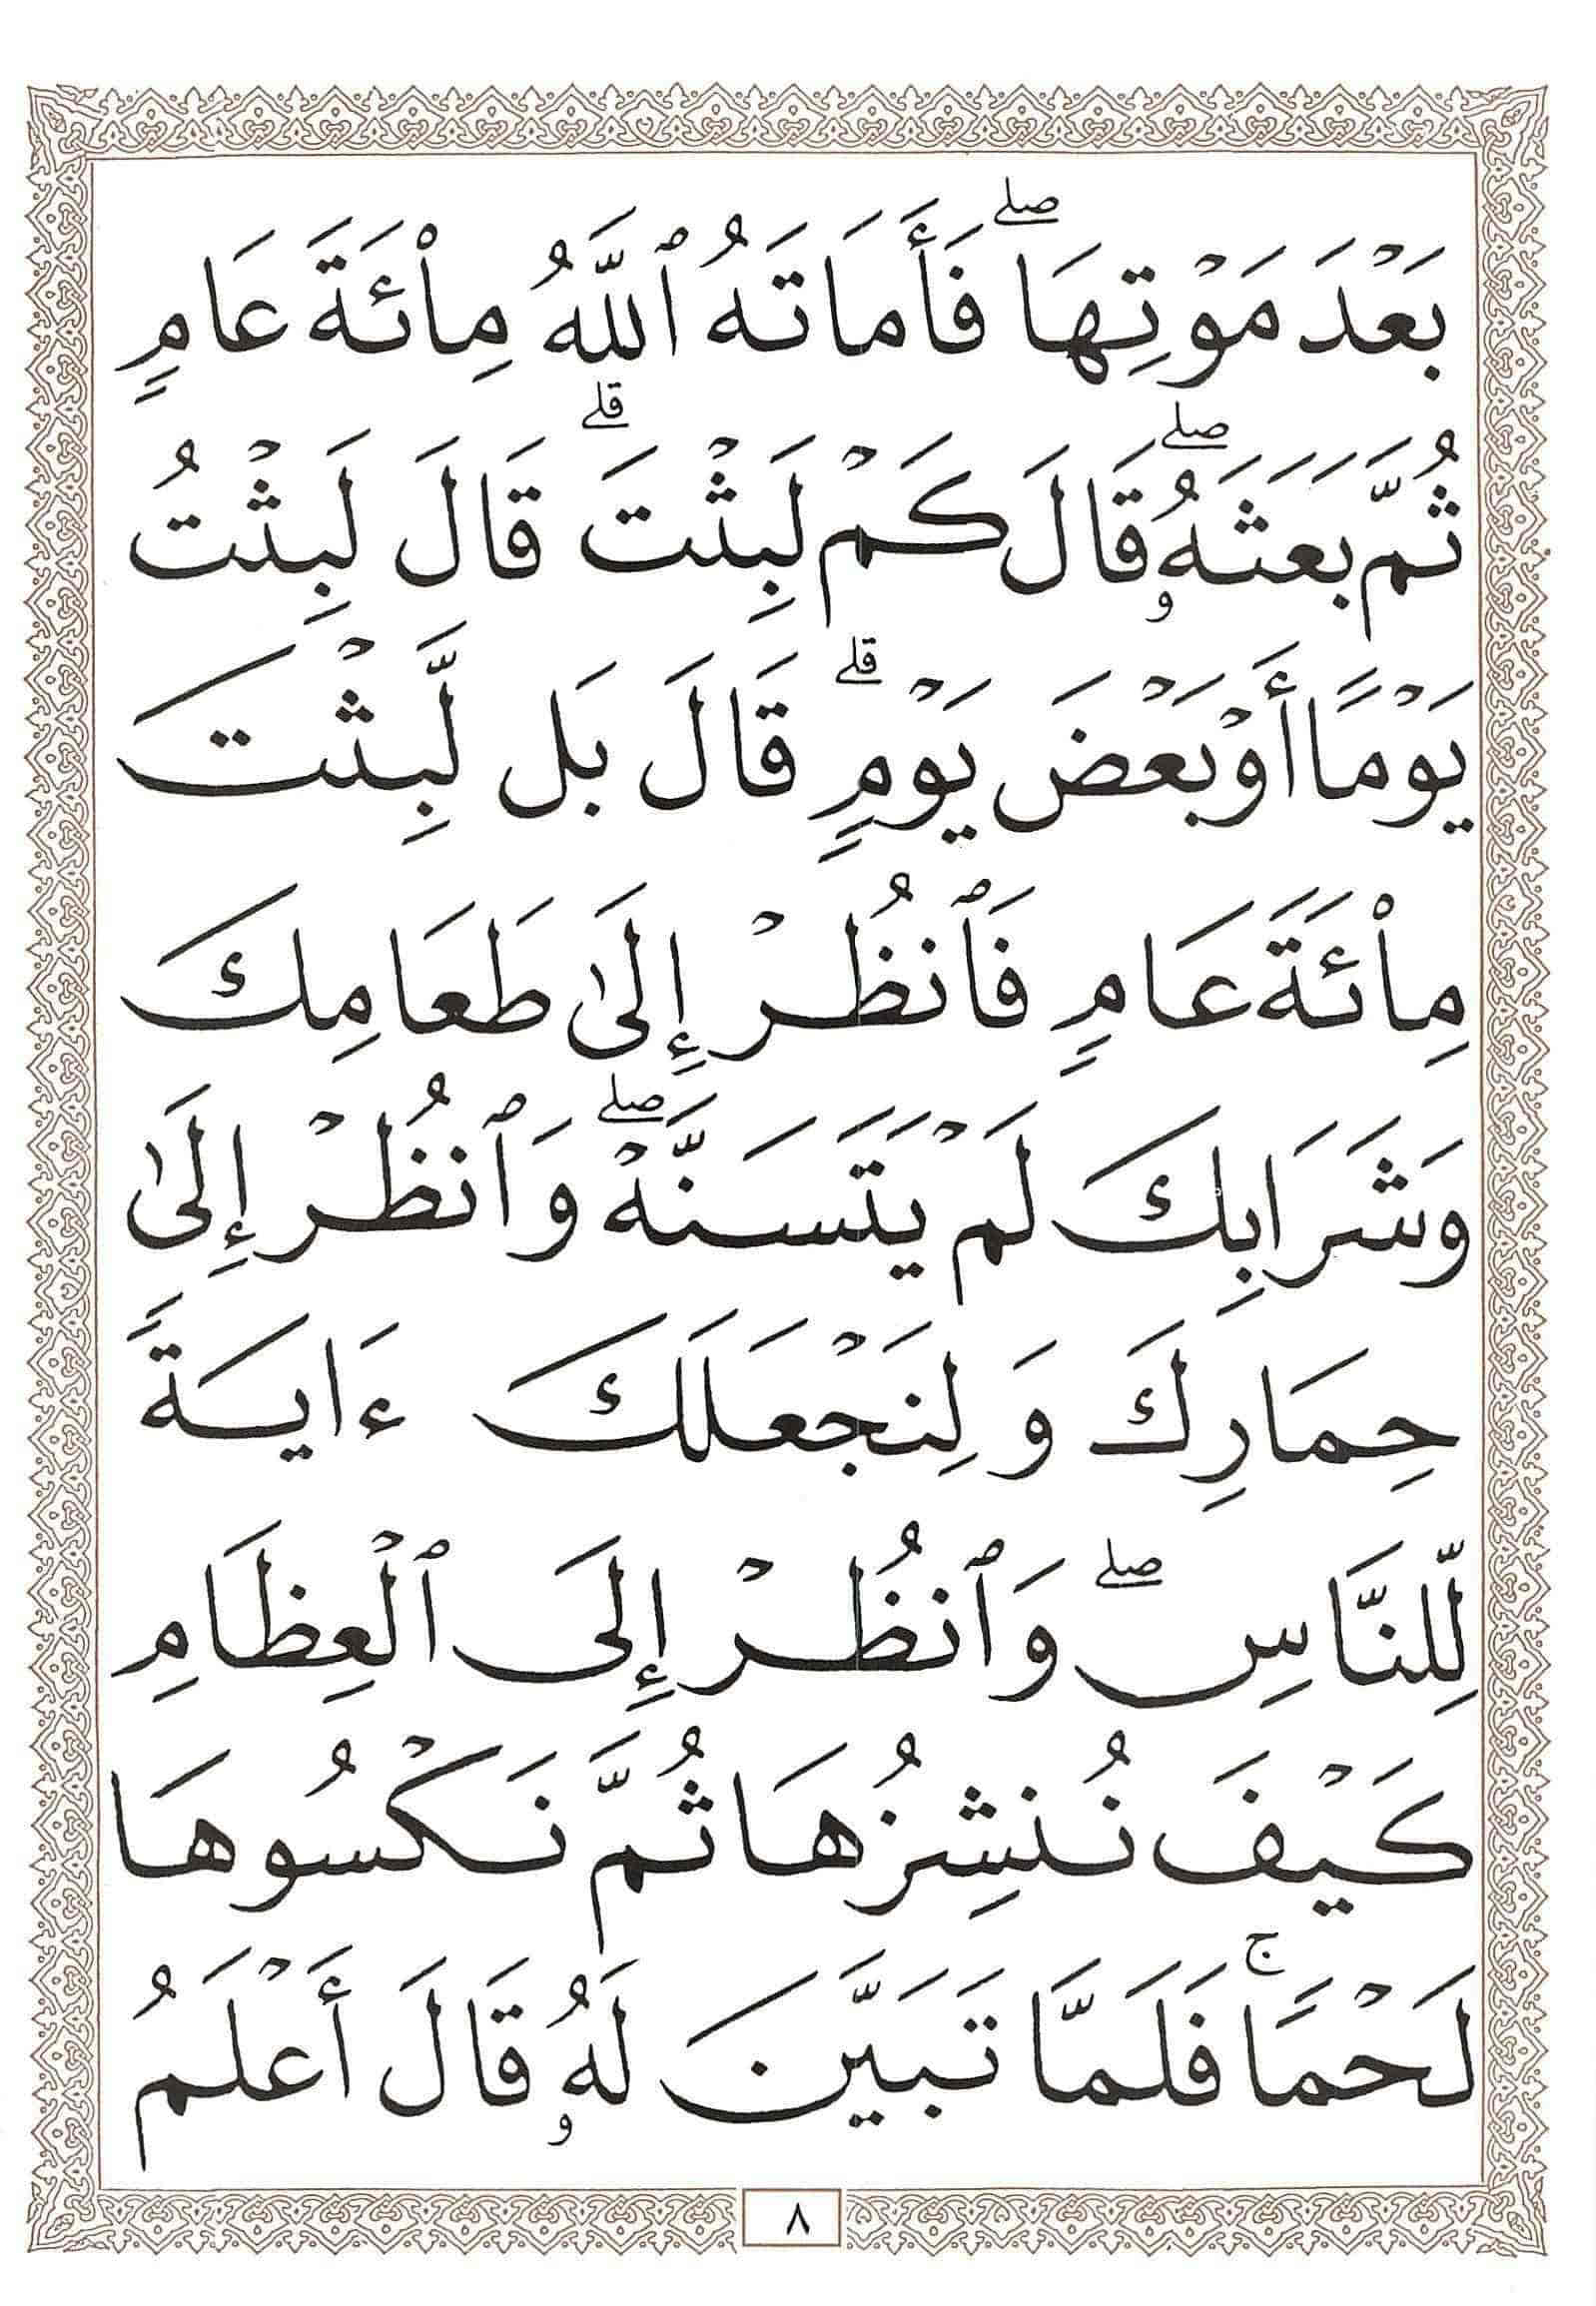 بَعْدَ مَوْتِهَا ۖ فَأَمَاتَهُ ٱللَّهُ مِا۟ئَةَ عَامٍ
ثُمَّ بَعَثَهُۥ ۖ قَالَ كَمْ لَبِثْتَ ۖ قَالَ لَبِثْتُ
يَوْمًا أَوْ بَعْضَ يَوْمٍ ۖ قَالَ بَل لَّبِثْتَ
مِا۟ئَةَ عَامٍ فَٱنظُرْ إِلَىٰ طَعَامِكَ
وَشَرَابِكَ لَمْ يَتَسَنَّهْ ۖ وَٱنظُرْ إِلَىٰ
حِمَارِكَ وَلِنَجْعَلَكَ ءَايَةً
لِّلنَّاسِ ۖ وَٱنظُرْ إِلَى ٱلْعِظَامِ
كَيْفَ نُنشِزُهَا ثُمَّ نَكْسُوهَا
لَحْمًا ۚ فَلَمَّا تَبَيَّنَ لَهُۥ قَالَ أَعْلَمُ
٨